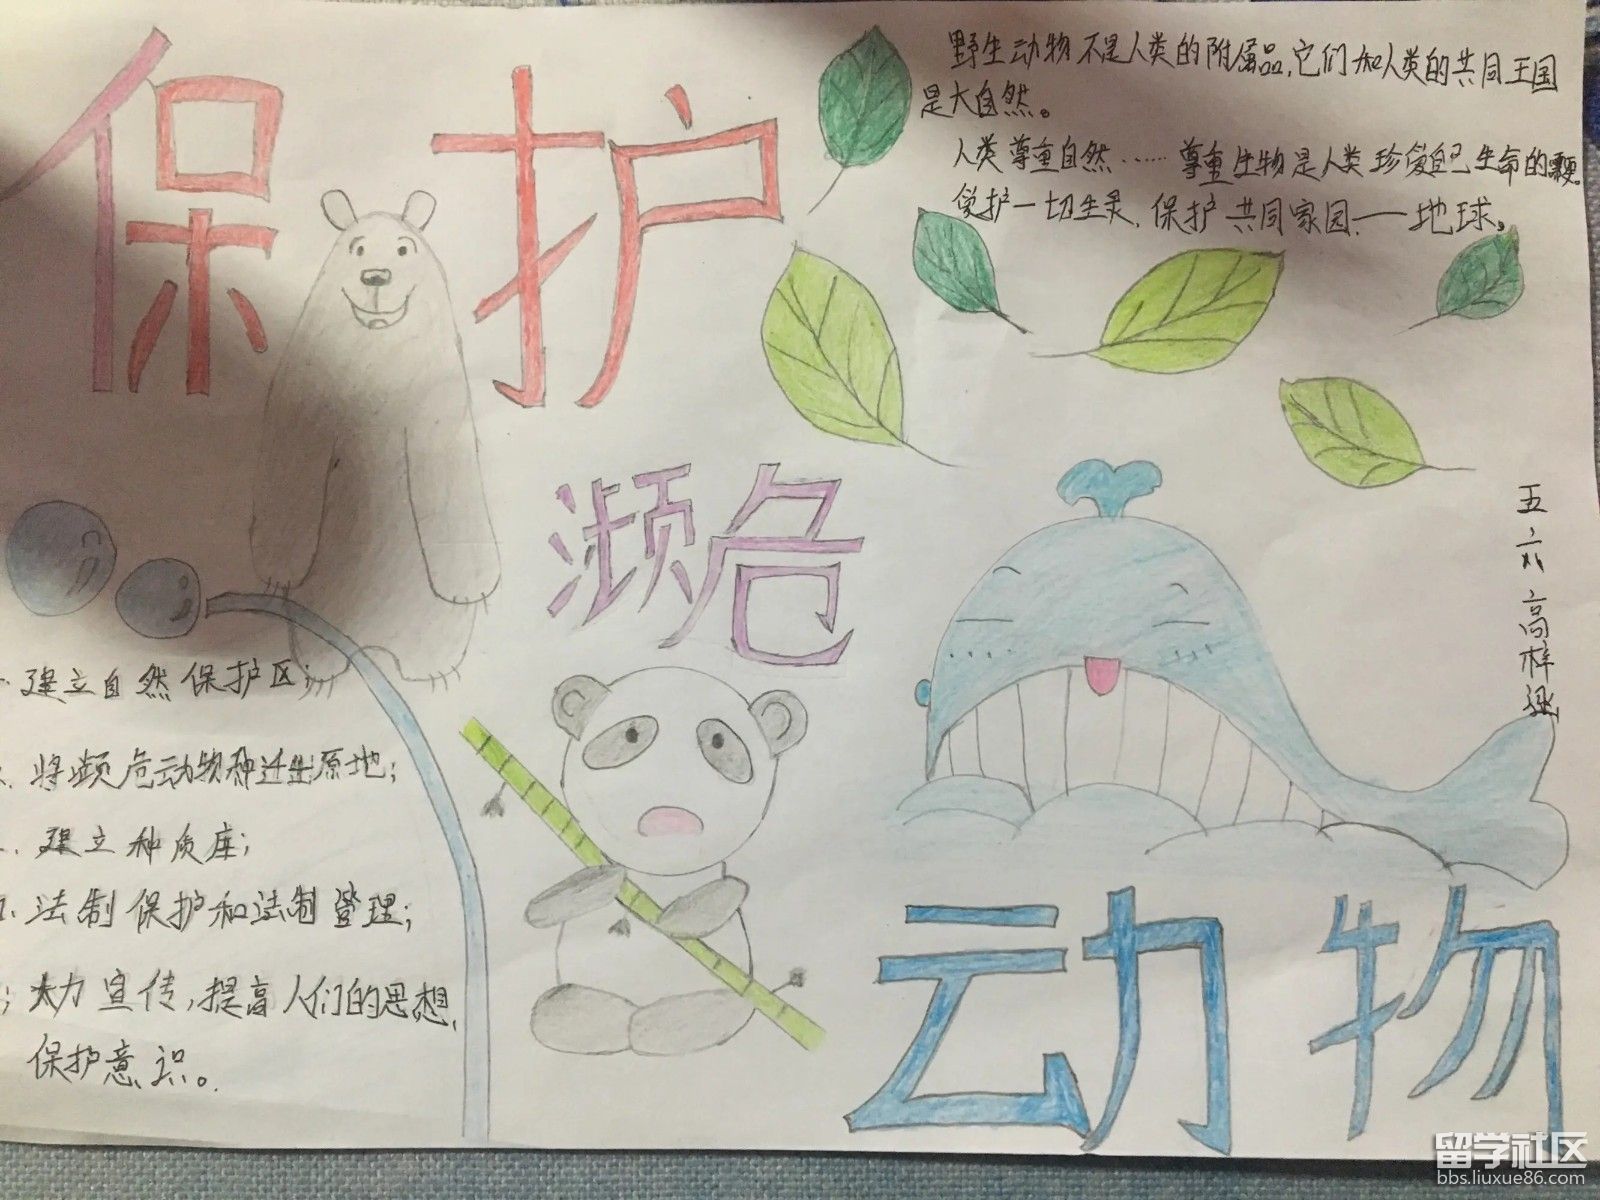 保护
濒危
动物
野生动物不是人类的附属品,它们和人类的共同王国
是大自然。
人类尊重自然……尊重生物是人类珍爱自己生命的
爱护一切生灵,保护共同家园——地球。
五六高梓
建立自然保护区;
将濒危动物种迁出原地;
建立种质库;
法制保护和法制管理;
大力宣传,提高人们的思想,
保护意识。
留学社区
bbs.liuxue86.com